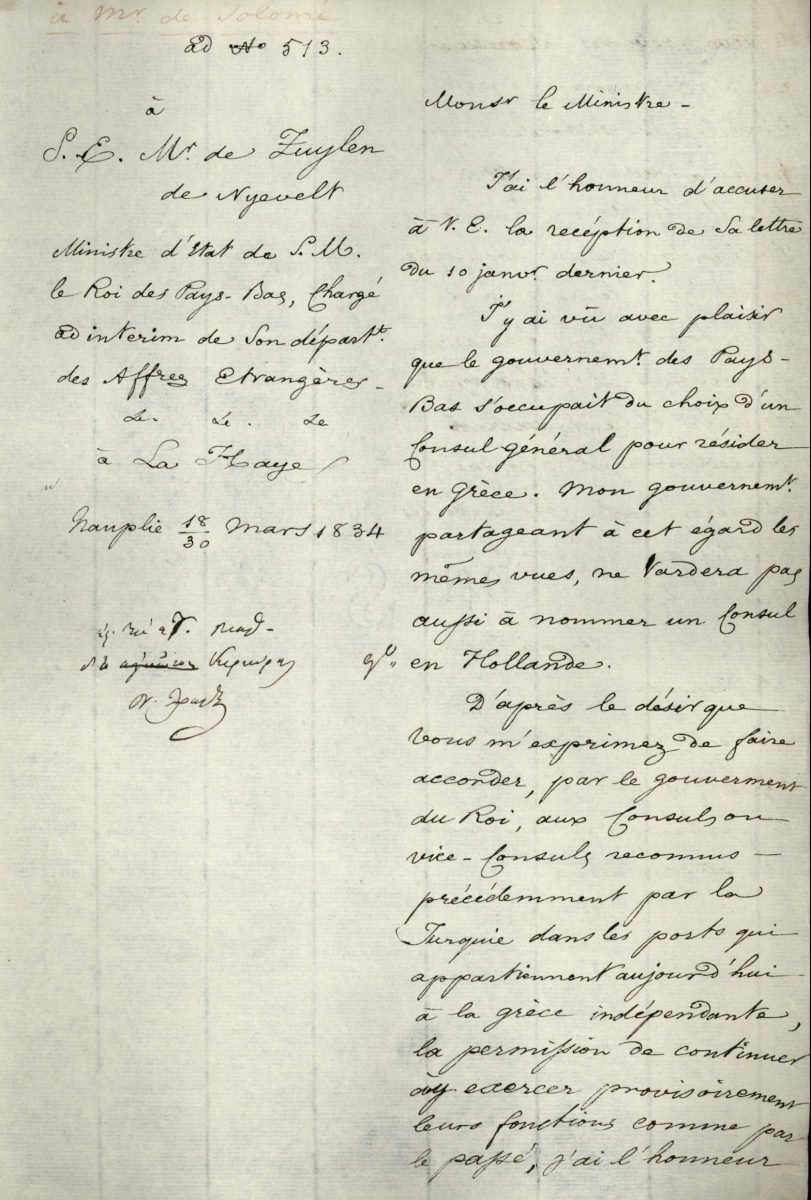 à Mr. de Solomé
ad No 513.
à
S. E. Mr. de Zuylen
de Nyevelt
Ministre d'Etat de S. M.
le Roi des Pays-Bas, Chargé
ad interim de Son départt.
des Affres Etrangères-
&c. &c. &c
à La Haye
Nauplie 18/30 Mars 1834
Monsr le Ministre-
J'ai l'honneur d'accuser
à V. E. la recéption de Sa lettre
du 10 janvr. dernier.
J'y ai vû avec plaisir
que le gouvernemt. des Pays-
Bas s'occupait du choix d'un
Consul général pour résider
en Grèce. Mon gouvernemt.
partageant à cet égard les
mêmes vues, ne tardera pas
aussi à nommer un Consul
en Hollande.
D'après le désir que
vous m'exprimez de faire
accorder, par le gouverment
du Roi, aux Consuls ou
vice-Consuls reconnus
précédemment par la
Turquie dans les ports qui
appartiennent aujourd'hui
à la Grèce indépendante,
la permission de continuer
à y exercer provisoirement
leurs fonctions comme par
le passé, j'ai l'honneur